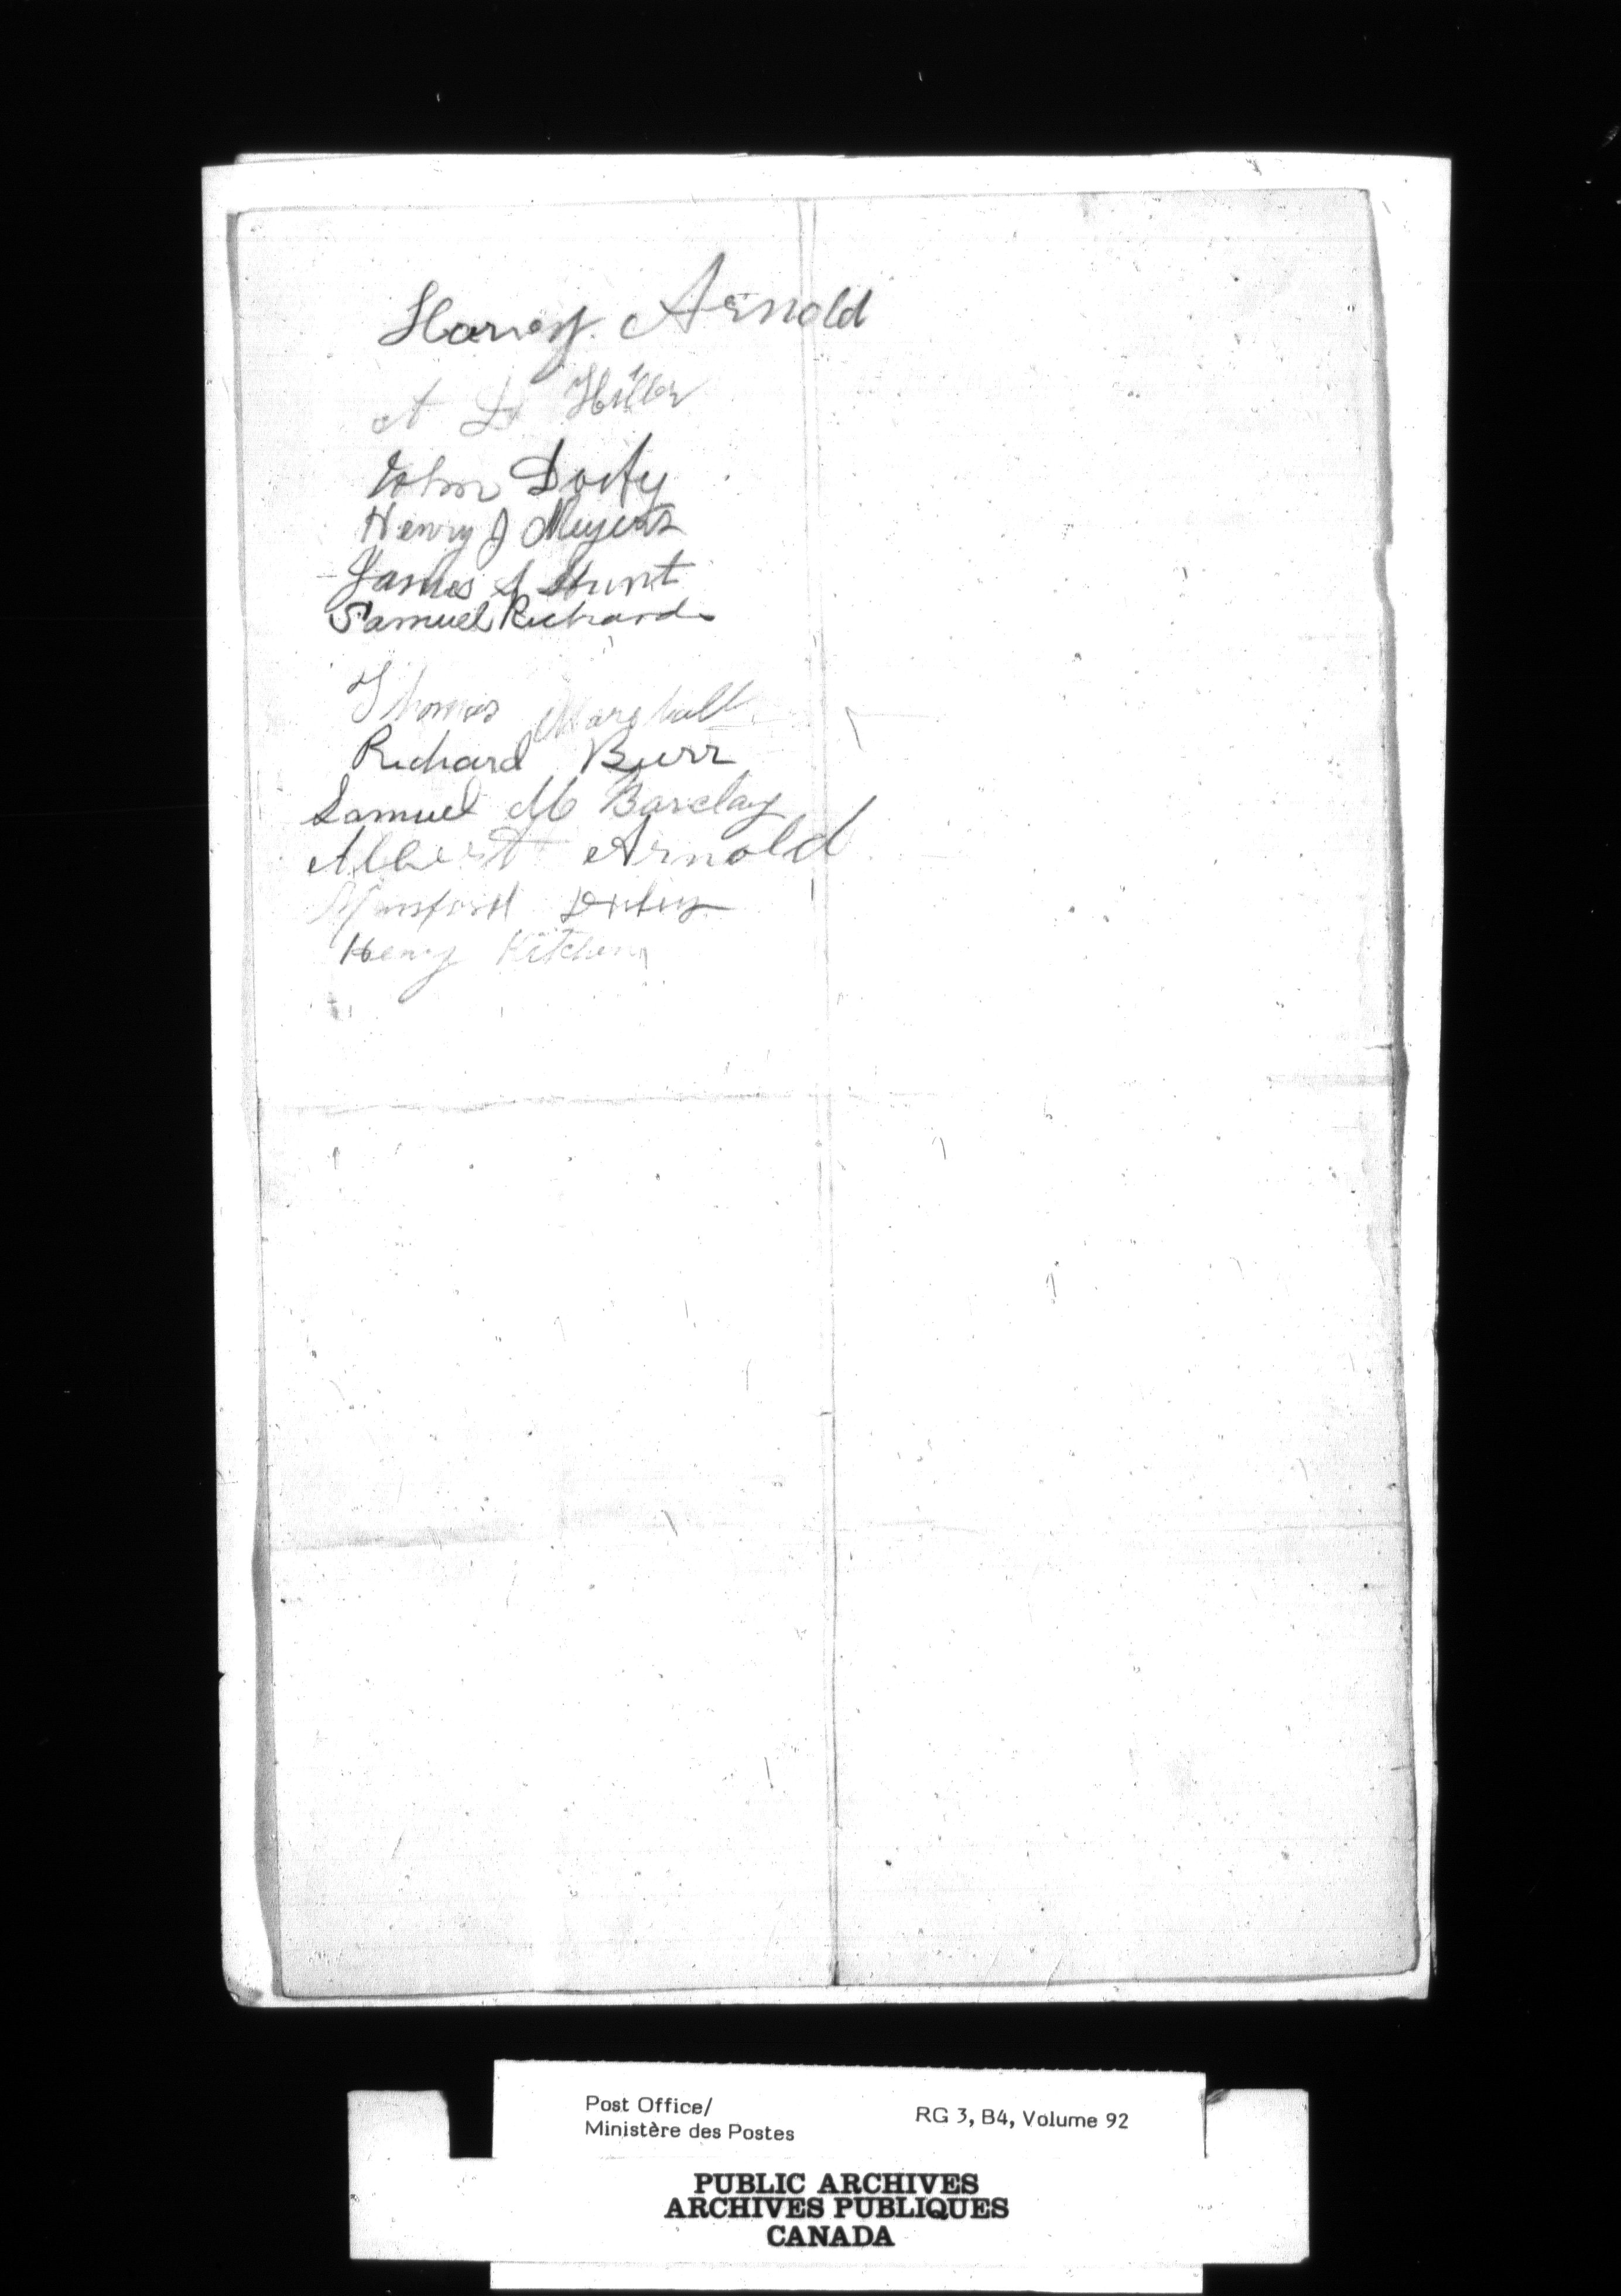 Harvey Arnold
A L Hiller
John Doity
Henry J Meyers
James S Hunt
Samuel Richards
Thomas Marshall
Richard Burr
Samuel M Barclay
Albert Arnold
Henry Kitchen
Post Office/
Ministère des Postes
RG 3, B4, Volume 92
PUBLIC ARCHIVES
ARCHIVES PUBLIQUES
CANADA